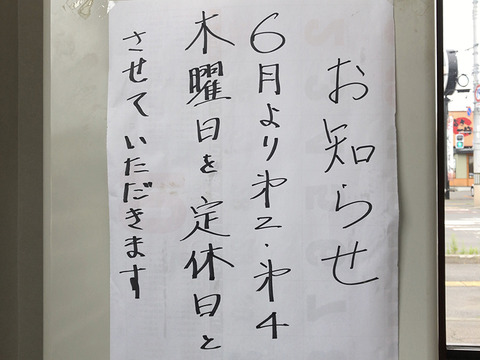 お知らせ
6月より第2・第4
木曜日を定休日と
させていただきます